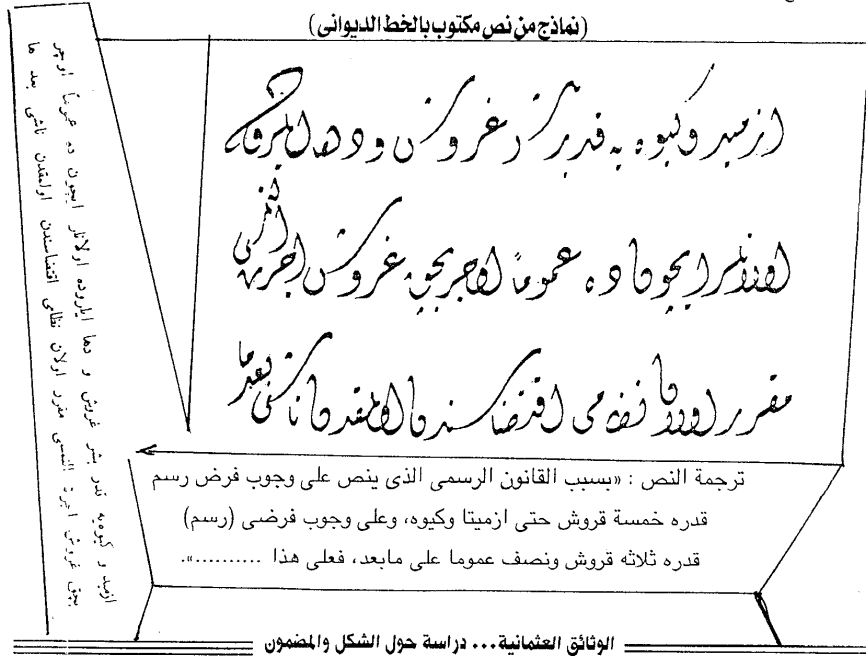 (نماذج من نص مكتوب بالخط الديوانى)
ازميد وكيوه يه قدر بشر غروش و دها ايلروده
اولانلر ايچون ده عموماً اوچر بچق غروش اجرت النمسى
مقرر اولان نظامى اقتضاسندن اولمقدن ناشى بعد ما
ازميد و كيوه يه قدر بشر غروش و دها ايلروده اولانلر ايچون ده عموماً اوچر
بچق غروش اجرت النمسى مقرر اولان نظامى اقتضاسندن اولمقدن ناشى بعد ما
ترجمة النص : «بسبب القانون الرسمى الذى ينص على وجوب فرض رسم
قدره خمسة قروش حتى ازميتا وكيوه، وعلى وجوب فرضى (رسم)
قدره ثلاثه قروش ونصف عموما على مابعد، فعلى هذا ..........».
الوثائق العثمانية... دراسة حول الشكل والمضمون